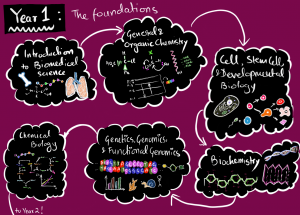 Year 1:
The foundations
Introduction
to Biomedical
science
General &
Organic Chemistry
Cell, Stem Cell,
& Developmental
Biology
Biochemistry
Genetics, Genomics,
& Functional Genomics
Chemical
Biology
to Year 2!